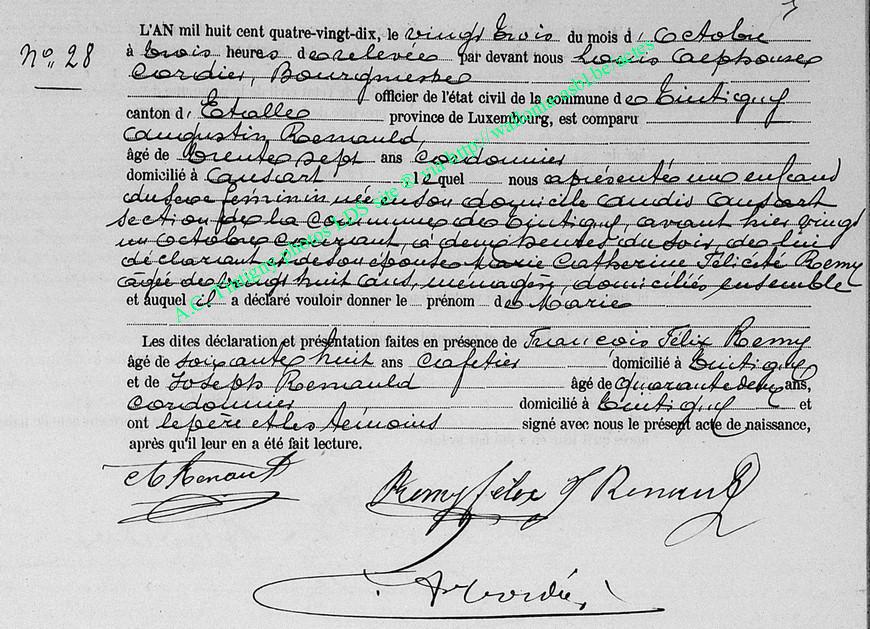 L'AN mil huit cent quatre-vingt-dix, le vingt trois du mois d'Octobre
N° 28
à trois heures de relevée par devant nous Louis Alphonse
Cordier, Bourgmestre
officier de l'état civil de la commune de Tintigny
canton d'Etalle province de Luxembourg, est comparu
Augustin Renauld,
âgé de trente sept ans Cordonnier
domicilié à Ansart lequel nous a présenté un enfant
du sexe féminin née en son domicile audit Ansart
section de la Commune de Tintigny, avant hier vingt
un Octobre courant, à deux heures du soir, de lui
déclarant et de son épouse Marie Catherine Félicité Remy
âgée de vingt huit ans, ménagère, domiciliés ensemble
et auquel il a déclaré vouloir donner le prénom de Marie
Les dites déclaration et présentation faites en présence de François Félix Remy
âgé de soixante huit ans Cafetier domicilié à Tintigny
et de Joseph Renauld âgé de quarante deux ans,
cordonnier domicilié à Tintigny et
ont le père et les témoins signé avec nous le présent acte de naissance,
après qu'il leur en a été fait lecture.
A Renauld
Remy félix J Renauld
A Cordier
A.C. Tintigny photos LDS site © via http://wallonia.asbl.be/actes